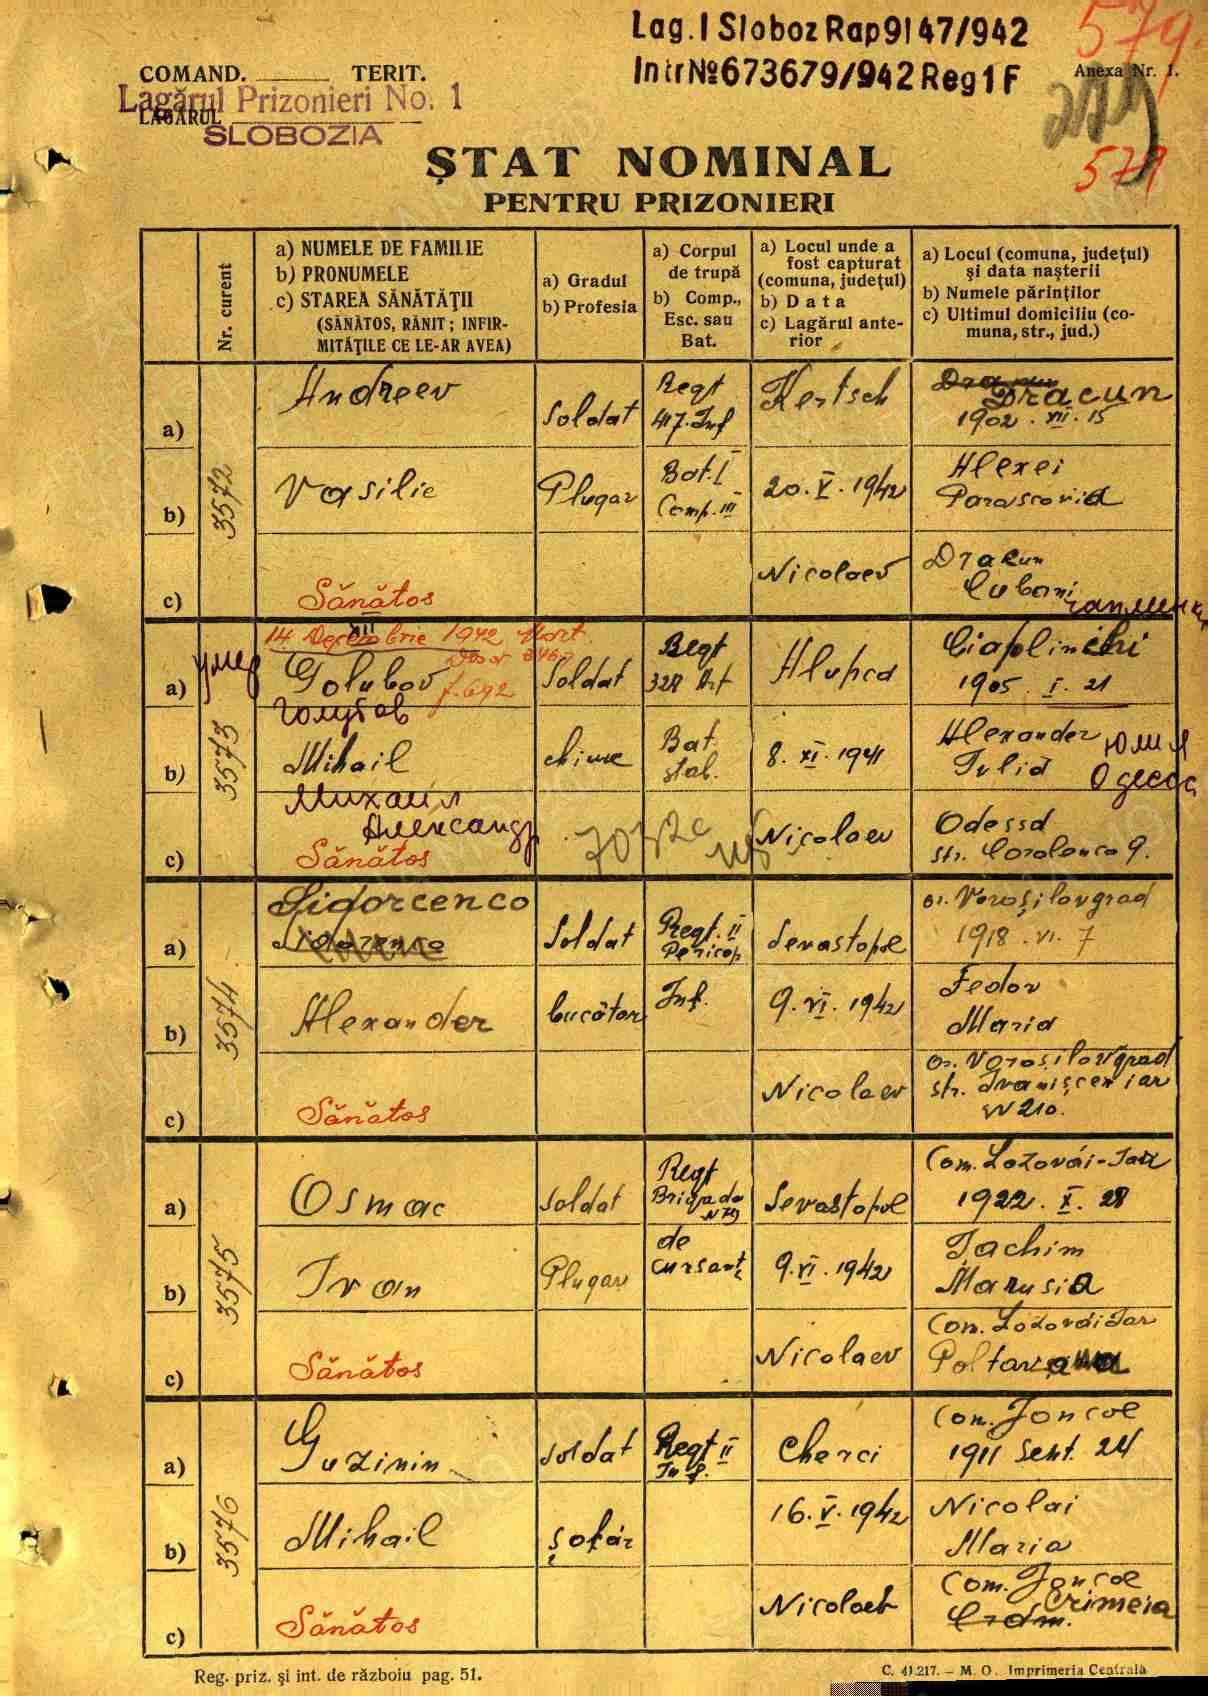 Lag. I Sloboz Rap 9147/942
Intr № 673679/942 Reg 1 F
579.
COMAND. TERIT.
Anexa Nr. 1.
Lagărul Prizonieri No. 1
LAGĂRUL
SLOBOZIA
579
ŞTAT NOMINAL
PENTRU PRIZONIERI
Nr. curent
a) NUMELE DE FAMILIE
b) PRONUMELE
c) STAREA SĂNĂTĂŢII
(SĂNĂTOS, RĂNIT; INFIR-
MITĂŢILE CE LE-AR AVEA)
a) Gradul
b) Profesia
a) Corpul
de trupă
b) Comp.,
Esc. sau
Bat.
a) Locul unde a
fost capturat
(comuna, judeţul)
b) Data
c) Lagărul ante-
rior
a) Locul (comuna, judeţul)
şi data naşterii
b) Numele părinţilor
c) Ultimul domiciliu (co-
muna, str., jud.)
3572
a)
Andreev
Soldat
Regt
417. Inf
Kertsch
Dracun
1902. XII. 15
b)
Vasilie
Plugar
Bat. I
Comp. III
20. V. 1942
Alexei
Parascovia
c)
Sănătos
Nicolaev
Dracun
Cubani
3573
14 Decembrie 1942 Mort
XII
умер
a)
Golubov
f. 692
Голубов
Soldat
Regt
328 Art
Hlupca
Чаплинка
Ciaplinchi
1905. I. 21
b)
Mihail
Михаил
Александр
Bat.
stab.
8. XI. 1941
Alexander
Iulia
Юлия
Одесса
c)
Sănătos
Nicolaev
Odessa
str. Corolenco 9.
3574
a)
Sidorcenco
Soldat
Regt. II
Pericop
Sevastopol
or. Voroşilovgrad
1918. VI. 7
b)
Alexander
bucător
Inf.
9. VI. 1942
Fedor
Maria
c)
Sănătos
Nicolaev
or. Voroşilovgrad
str.
№ 210.
3575
a)
Osmac
Soldat
Regt
Brigada
N 79
Sevastopol
Com. Lozovái-Iar
1922. X. 28
b)
Ivan
Plugar
de
cursanti
9. VI. 1942
Iachim
Marusia
c)
Sănătos
Nicolaev
Com. Lozovái Iar
Poltava
3576
a)
Guzinin
Soldat
Regt II
Inf.
Cherci
Com. Joncoe
1911 Sent. 24
b)
Mihail
şofár
16. V. 1942
Nicolai
Maria
c)
Sănătos
Nicolaev
Com. Joncoe
Crimeia
Reg. priz. şi int. de războiu pag. 51.
C. 41.217. — M. O. Imprimeria Centrală